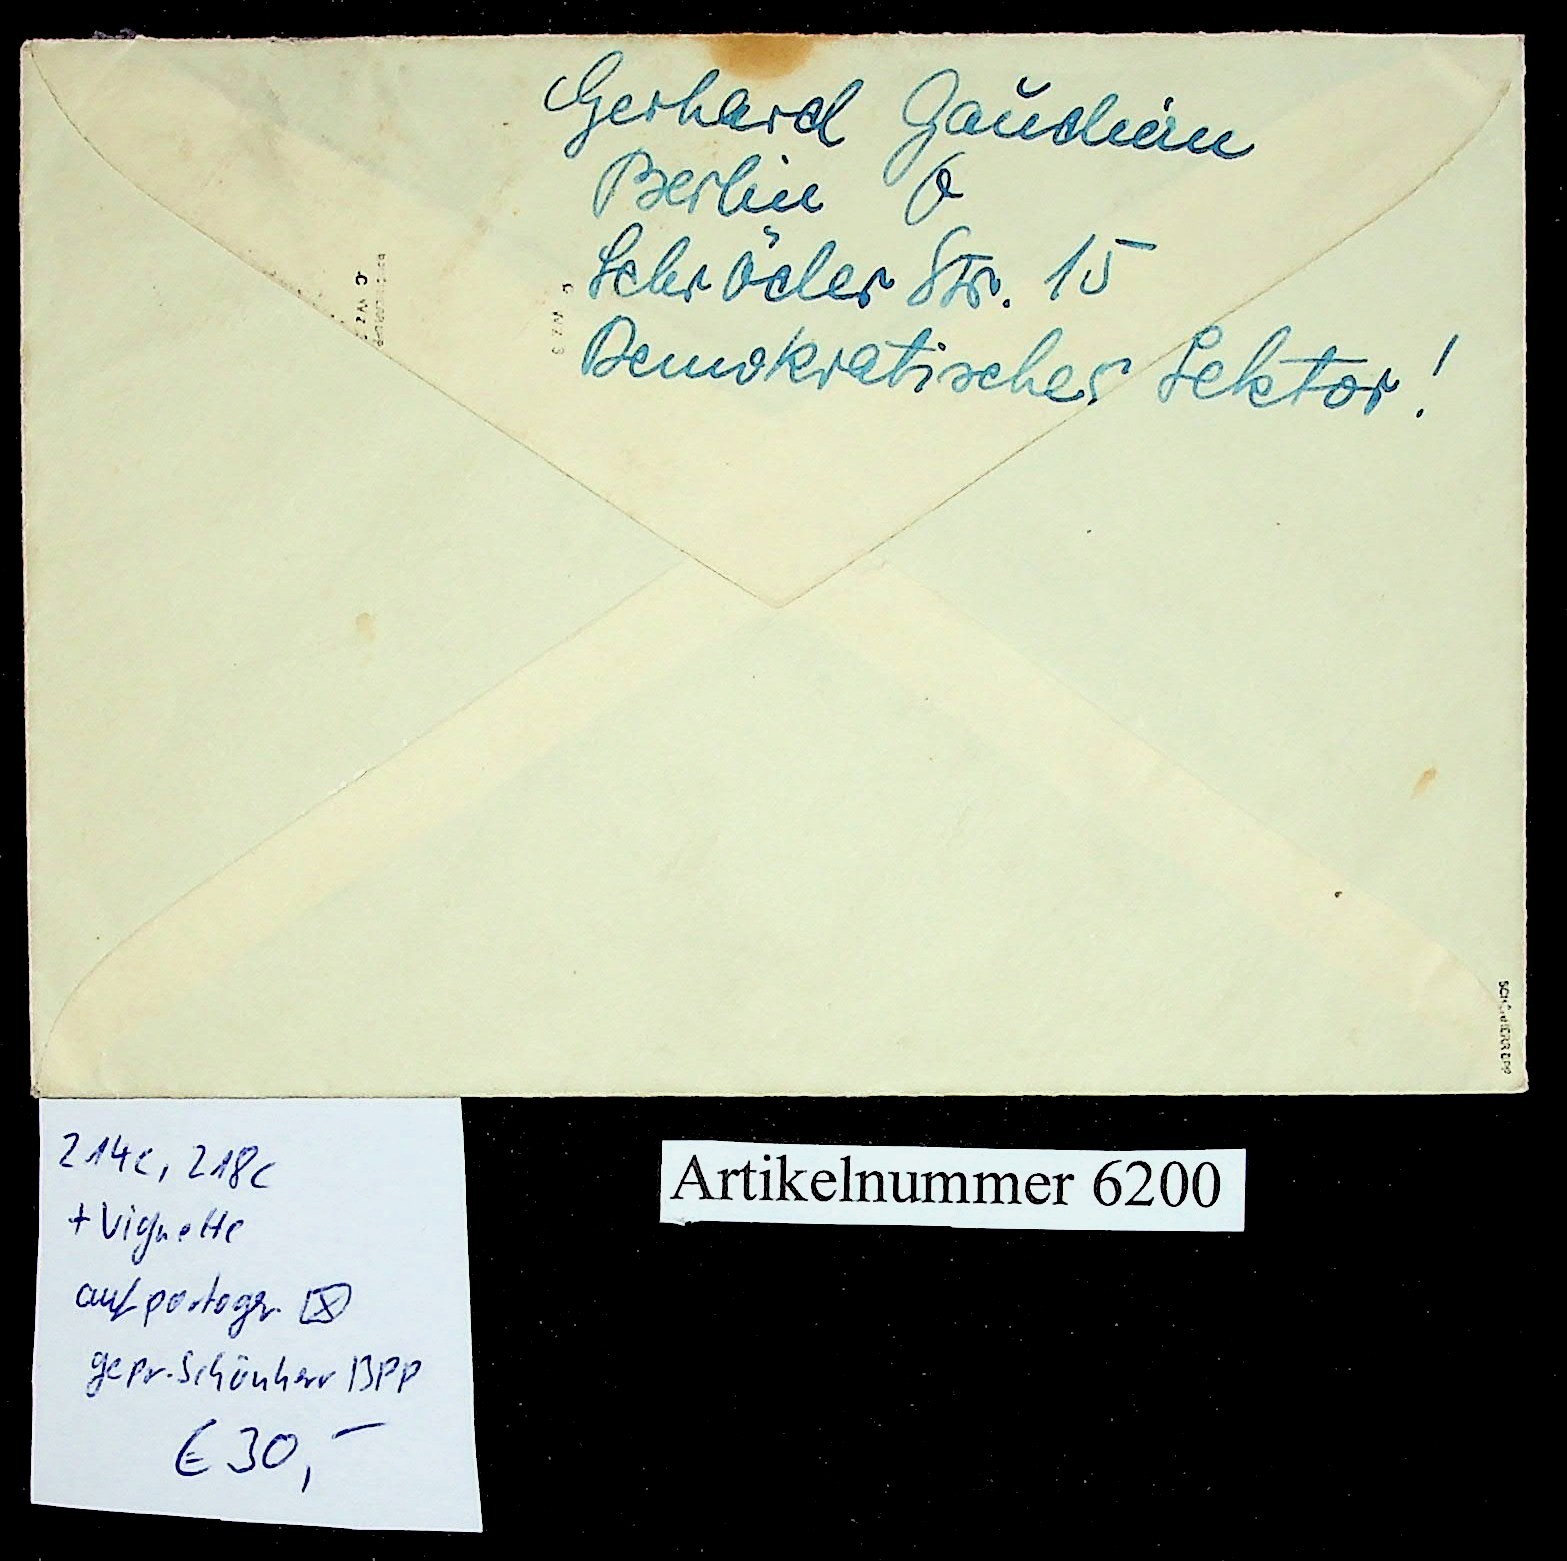 Gerhard Gaudian
Berlin O
Schröder Str. 15
Demokratischer Sektor!
SCHÖNHERR BPP
214c, 218c
+ Vignette
auf portoger.
gepr. Schönherr BPP
€ 30,-
Artikelnummer 6200